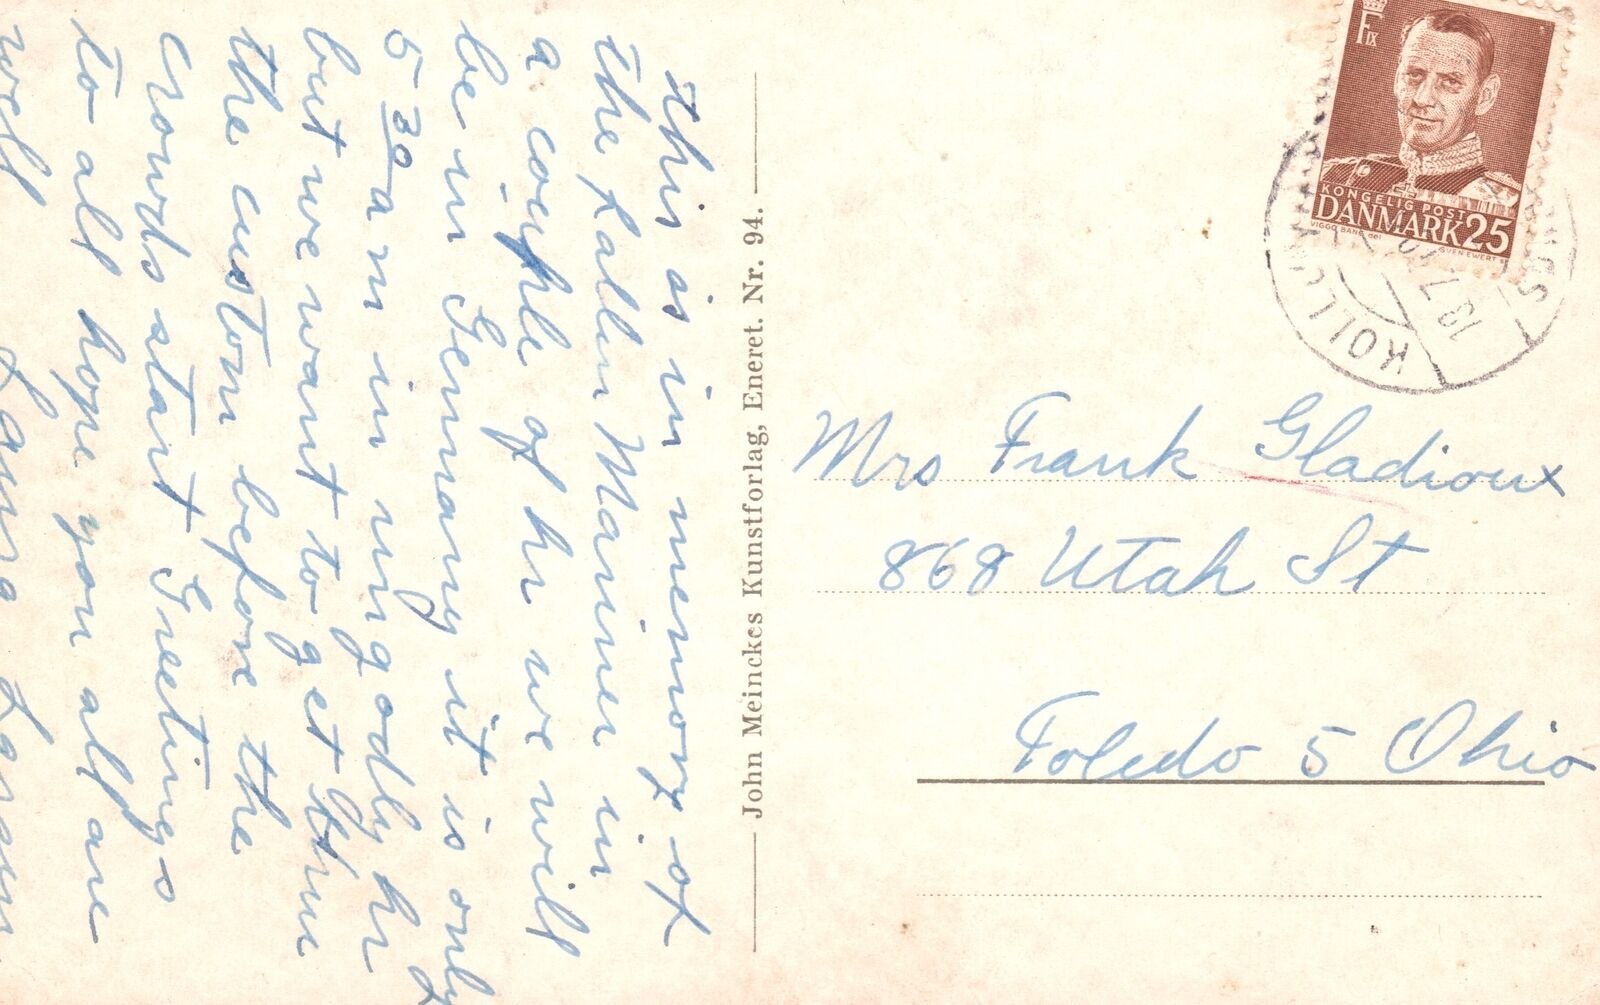 This is in memory of
the Fallen Mariner in
a couple of hr we will
be in Germany it is only
5 30 a m in ungodly hr
but we want to get thru
the custom before the
crowds start Greetings
to all hope you all are
well
John Meinckes Kunstforlag, Eneret. Nr. 94.
F IX
KONGELIG POST
DANMARK 25
VIGGO BANG del.
SVEN EWERT s
KOLL
18.7
Mrs Frank Gladioux
868 Utah St
Toledo 5 Ohio